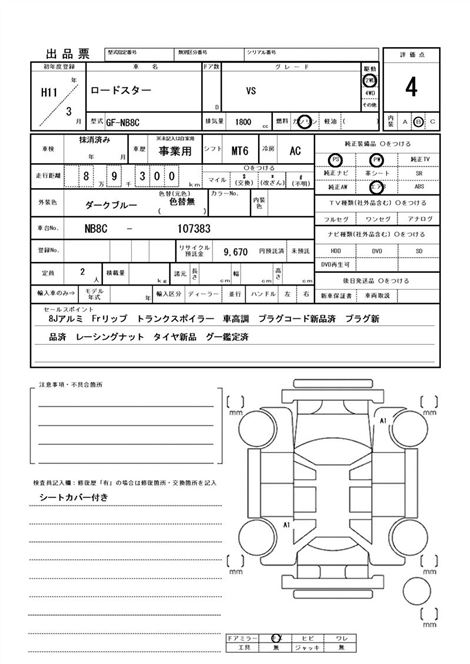 出品票 型式指定番号 類別区分番号 シリアル番号
初年度登録 車名 ドア数 グレード 駆動 評価点
H11 年 3 月 ロードスター D VS 2WD 4WD その他 4
型式 GF-NB8C 排気量 1800 cc 燃料 ガソリン 軽油 ( ) 内装 A B C
車検 抹消済み 年 月 車歴 ※未記入は自家用 事業用 シフト MT6 冷房 AC 純正装備品 〇をつける
PS PW 純正TV
走行距離 8 万 9 千 300 km 〇をつける マイル $ (交換) * (改ざん) # (不明)
純正ナビ 革シート SR
純正AW エアB ABS
外装色 ダークブルー 色替(元色) 色替無 ( ) カラーNo. 内装色
TV種類(社外品含む) 〇をつける
フルセグ ワンセグ アナログ
車台No. NB8C - 107383
ナビ種類(社外品含む) 〇をつける
登録No. リサイクル預託金 9,670 円預託済 未預託
HDD DVD SD
DVD再生可
定員 2 人 積載量 kg 諸元 長さ 幅 高さ
後日発送品 〇をつける
輸入車のみ⇒ モデル年式 年 輸入区分 ディーラー 並行 ハンドル 左 右 新車保証書 車両取説
セールスポイント
8Jアルミ Frリップ トランクスポイラー 車高調 プラグコード新品済 プラグ新
品済 レーシングナット タイヤ新品 グー鑑定済
注意事項・不具合箇所
[ ] mm [ ] mm
A1
検査員記入欄:修復歴「有」の場合は修復箇所・交換箇所を記入
シートカバー付き
A1
[ ] mm [ ] mm
Fアミラー ヒビ ワレ
工具 無 ジャッキ 無